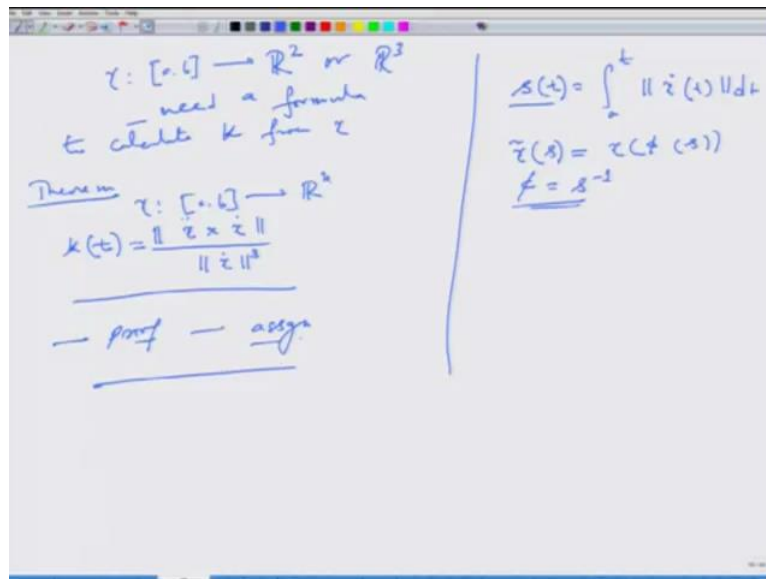 γ: [a,b] → ℝ² or ℝ³
— need a formula
to calculate k from γ
Theorem γ: [a,b] → ℝ³
k(t) = ‖ γ̈ × γ̇ ‖ / ‖ γ̇ ‖³
— proof — assgn
s(t) = ∫ₐᵗ ‖ γ̇(t) ‖ dt
γ̃(s) = γ(φ(s))
φ = s⁻¹